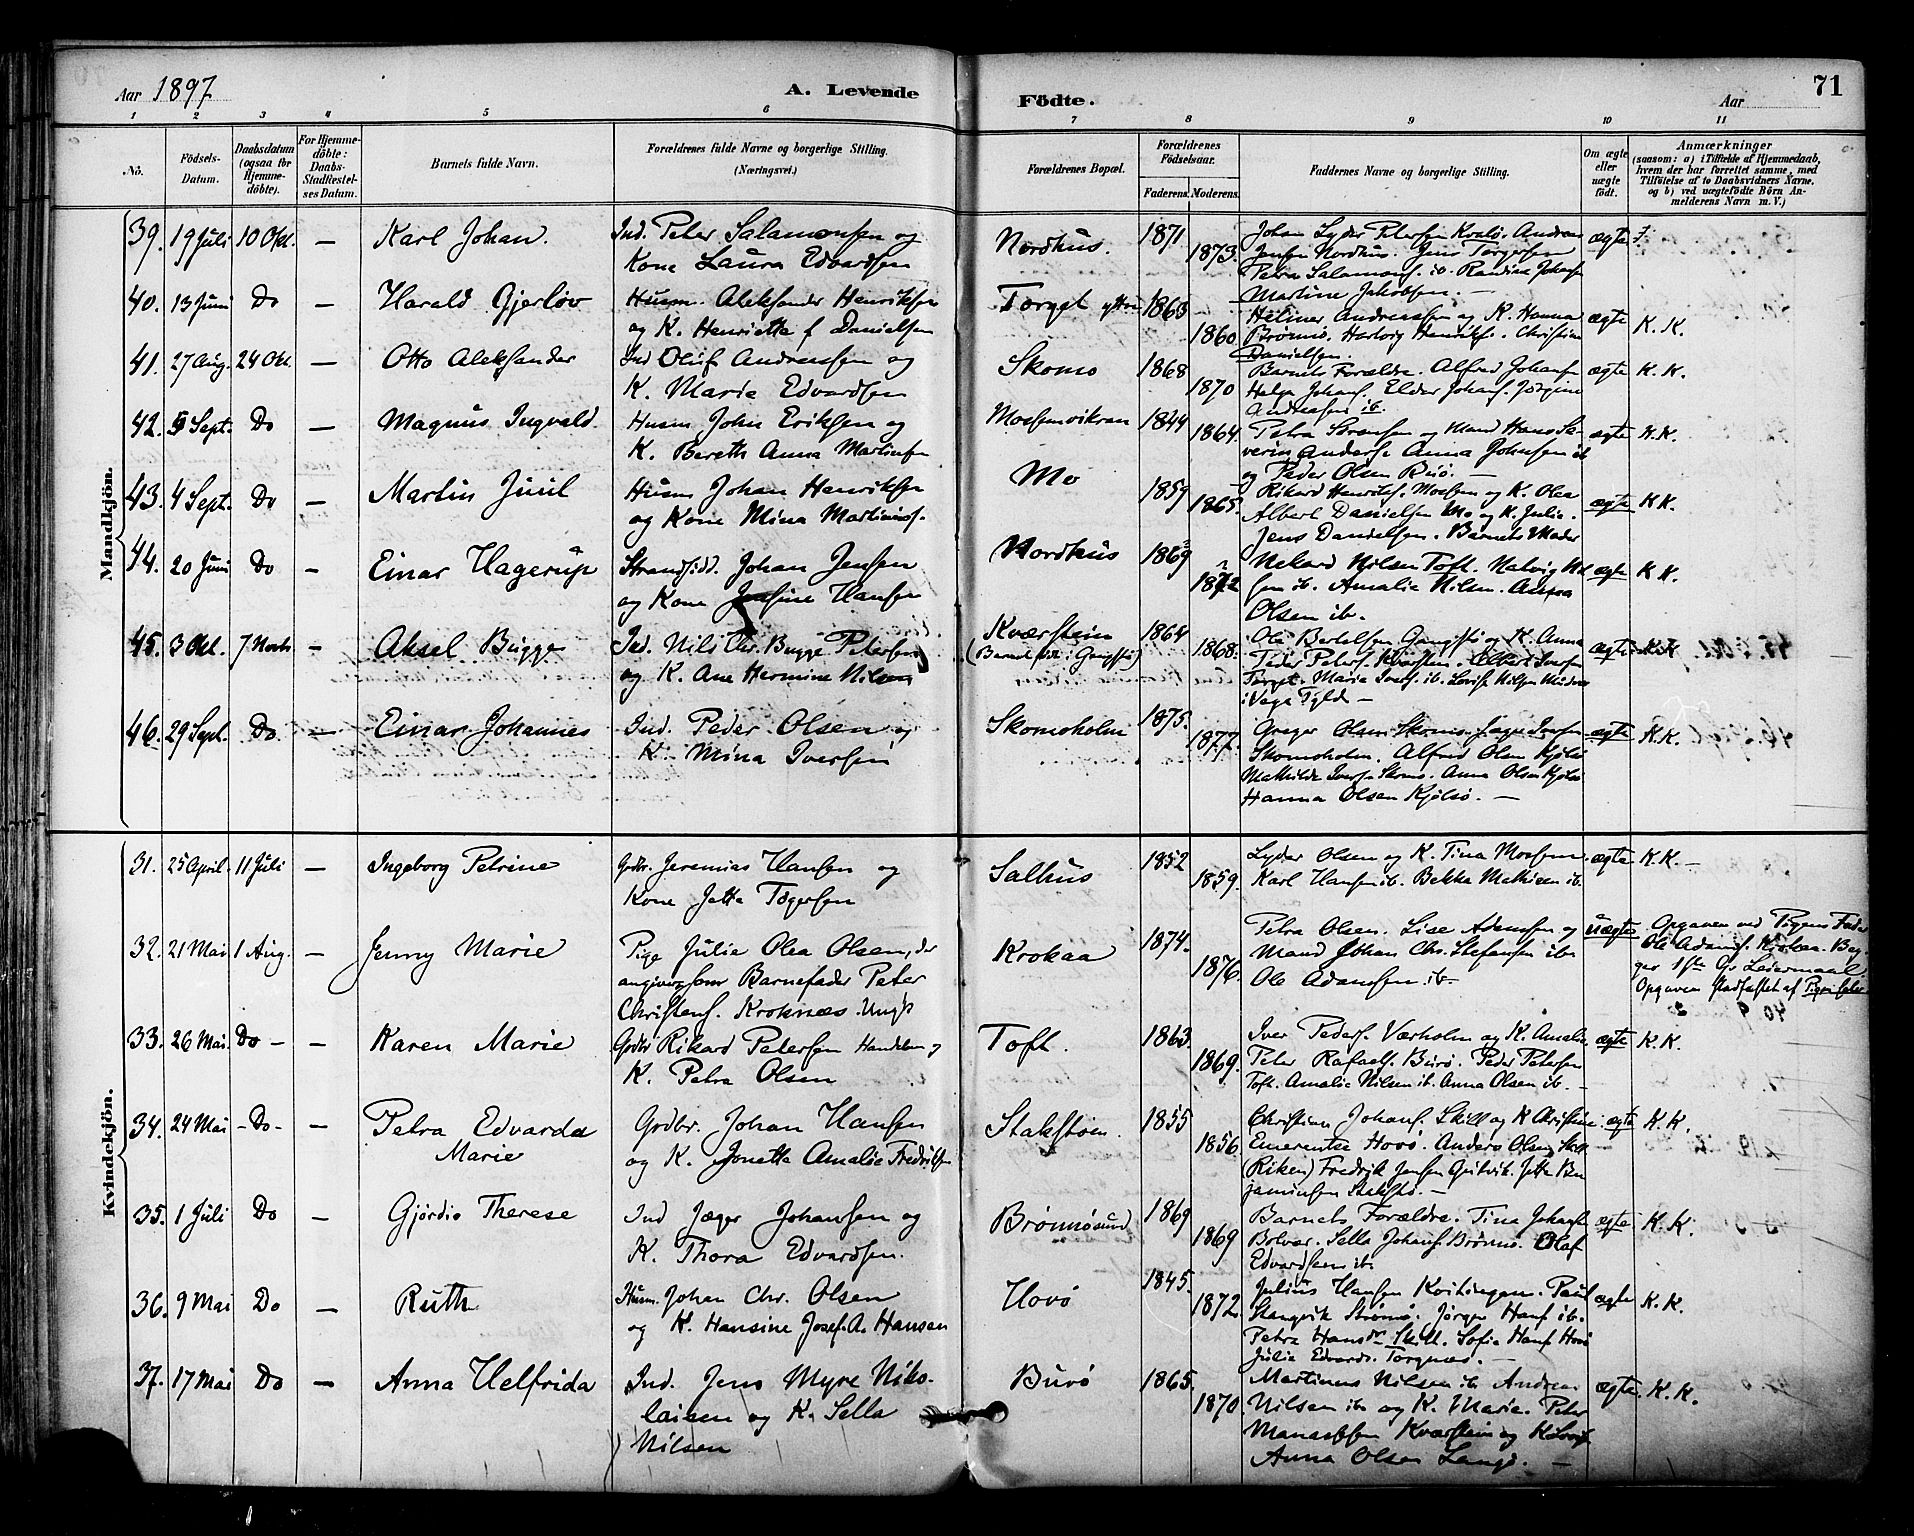 Aar 1897
A. Levende
Födte.
Aar
71
1 2 3 4 5 6 7 8 9 10 11
No.
Födsels-Datum.
Daabsdatum (ogsaa for Hjemme-döbte).
For Hjemme-döbte: Daabs-Stadfæstel-ses Datum.
Barnets fulde Navn.
Forældrenes fulde Navne og borgerlige Stilling. (Næringsvei.)
Forældrenes Bopæl.
Forældrenes Födselsaar.
Faderens. Moderens.
Faddernes Navne og borgerlige Stilling.
Om ægte eller uægte födt.
Anmærkninger
(saasom: a) i Tilfælde af Hjemmedaab,
hvem der har forrettet samme, med
Tilföielse af to Daabsvidners Navne,
og b) ved uægtefödte Börn An-
melderens Navn m. V.)
Mandkjön.
39. 19 Juli 10 Okt. — Karl Johan. Ind. Peter Salamonsen og
Kone Laura Edvardsen
Nordhus. 1871 1873.
Johan Lyder Petersen Andreas
Jensen Nordhus. Jens Torgersen
Petra Salamons. ib. Randine Johans
Martine Jakobsen. —
ægte
40. 13 Juni Do — Harald Gjerløv Husm. Aleksander Henriksen
og K. Henriette f Danielsen
Torget 1863 1860
Andreassen og K. Hanna
Brønnø. Hartvig Henriks. Christine
Danielsen.
ægte K. K.
41. 27 Aug. 24 Okt. — Otto Aleksander Ind Oluf Andreassen og
K. Marie Edvardsen
Skomo 1868 1870
Barnets Forældre. Alfred Johansen
Helga Johans. Elder Johans. Jørgine
Andreasen ib.
ægte K. K.
42. 5 Sept. Do — Magnus Ingvald. Husm John Eriksen og
K. Bereth Anna Martinsen
1844 1864.
Petra Sørensen og Mand Hans Se-
verin Anders. Anna Johnsen ib
og Peder Olsen Buø. —
ægte K. K.
43. 4 Sept. Do — Martin Juul Husm Johan Henriksen
og Kone Mina Martinus.
Mo 1859 1865.
Rikard Henriks. Moesen og K. Olea
Albert Danielsen Mo og K. Julie.
Jens Danielsen. Barnets Moder
ægte K K.
44. 20 Juni Do — Einar Hagerup Strandsidd. Johan Jensen
og Kone Josefine Hansen
Nordhus 1869 1872
Nilsen Toft.
ib. Amalie Nilsen. Anna
Olsen ib.
ægte K K.
45. 3 Okt. 7 Novb — Aksel Bugge Ind. Nils Chr. Bugge Petersen
og K. Ane Hermine Nilsen
Kværstein 1864 1868.
Ole Bertelsen Gangstø og K. Anna
Peder Peters. Kværstein. Albert Iversen
Torget. Maria Ivers. ib. Lovise Nilsen
i Vega —
ægte K.K
46. 29 Sept. Do. — Einar Johannes Ind. Peder Olsen og
K. Mina Iversen
Skomoholm 1875. 1877.
Greger Olsen Skomo. Iversen
Skomoholm. Alfred Olsen Kjølsø
Mathilde Ivers. Skomo. Anna Olsen Kjølsø
Hanna Olsen Kjølsø. —
ægte K.K.
Kvindekjön.
31. 25 April. 11 Juli — Ingeborg Petrine Gdbr. Jeremias Hansen og
Kone Jetta Togersen
Salhus 1852 1859.
Lyder Olsen og K. Tina Moesen.
Karl Hansen ib. Bekka Mathisen ib.
ægte K.K. —
32. 21 Mai 1 Aug. — Jenny Marie Pige Julie Olea Olsen, der
angiver som Barnefader Peter
Christens. Kroknæs. Ungk
Krokaa 1874. 1876.
Petra Olsen. Lise Adamsen og
Mand Johan Chr. Stefansen ib
Ole Adamsen ib. —
uægte Opgaven ved Pigens Fader
Ole Adams. Krokaa. Beg-
ger 1ste Gr Leiermaal.
Opgaven stadfæstet af
33. 26 Mai. Do — Karen Marie Gdbr Rikard Petersen Handelsm og
K. Petra Olsen
Toft. 1863 1869.
Iver Peders. Værholm og K. Amalie
Peter Rafaels. Burø. Peder Petersen
Toft. Amalie Nilsen ib. Anna Olsen ib. —
ægte K. K.
34. 24 Mai Do — Petra Edvarda
Marie
Gdbr. Johan Hansen
og K. Jonetta Amalie Fredriksen
1855 1856
Christian Johans. Skill og K Christine
Emerentse Hovø. Anders Olsen Skill
(Riken) Fredrik Jensen Jetta Ben
jaminsen —
ægte K. K.
35. 1 Juli Do — Gjørdis Therese Ind Jæger Johansen og
K. Thora Edvardsen.
Brønnøsund 1869 1869
Barnets Forældre. Tina Johans
Bolvær. Sella Johans. Brønnø. Olaf
Edvardsen ib.
ægte K. K.
36. 9 Mai Do — Ruth Husm. Johan Chr. Olsen
og K. Hansine Josef. A. Hansen
Hovø 1845. 1872.
Julius Hansen Kvitingen. Paul
Stangvik Strømø. Jørgen Hans ib.
Petra Hansdr Skill. Sofia Hans Hovø
Julie Edvards. Torgnæs. —
ægte K. K.
37. 17 Mai Do — Anna Helfrida Ind. Jens Myre Niko-
laisen og K. Sella
Nilsen
Burø 1865. 1870.
Martinus Nilsen ib. Andreas
Nilsen ib og K. Marie. Peter
Manassesen Kværstein og K Lovise
Anna Olsen Langø. —
ægte K. K.